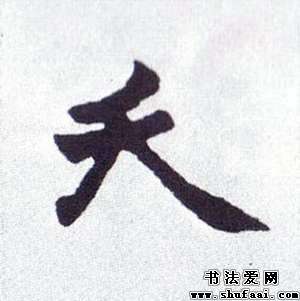 夭
书法爱网
www.shufaai.com